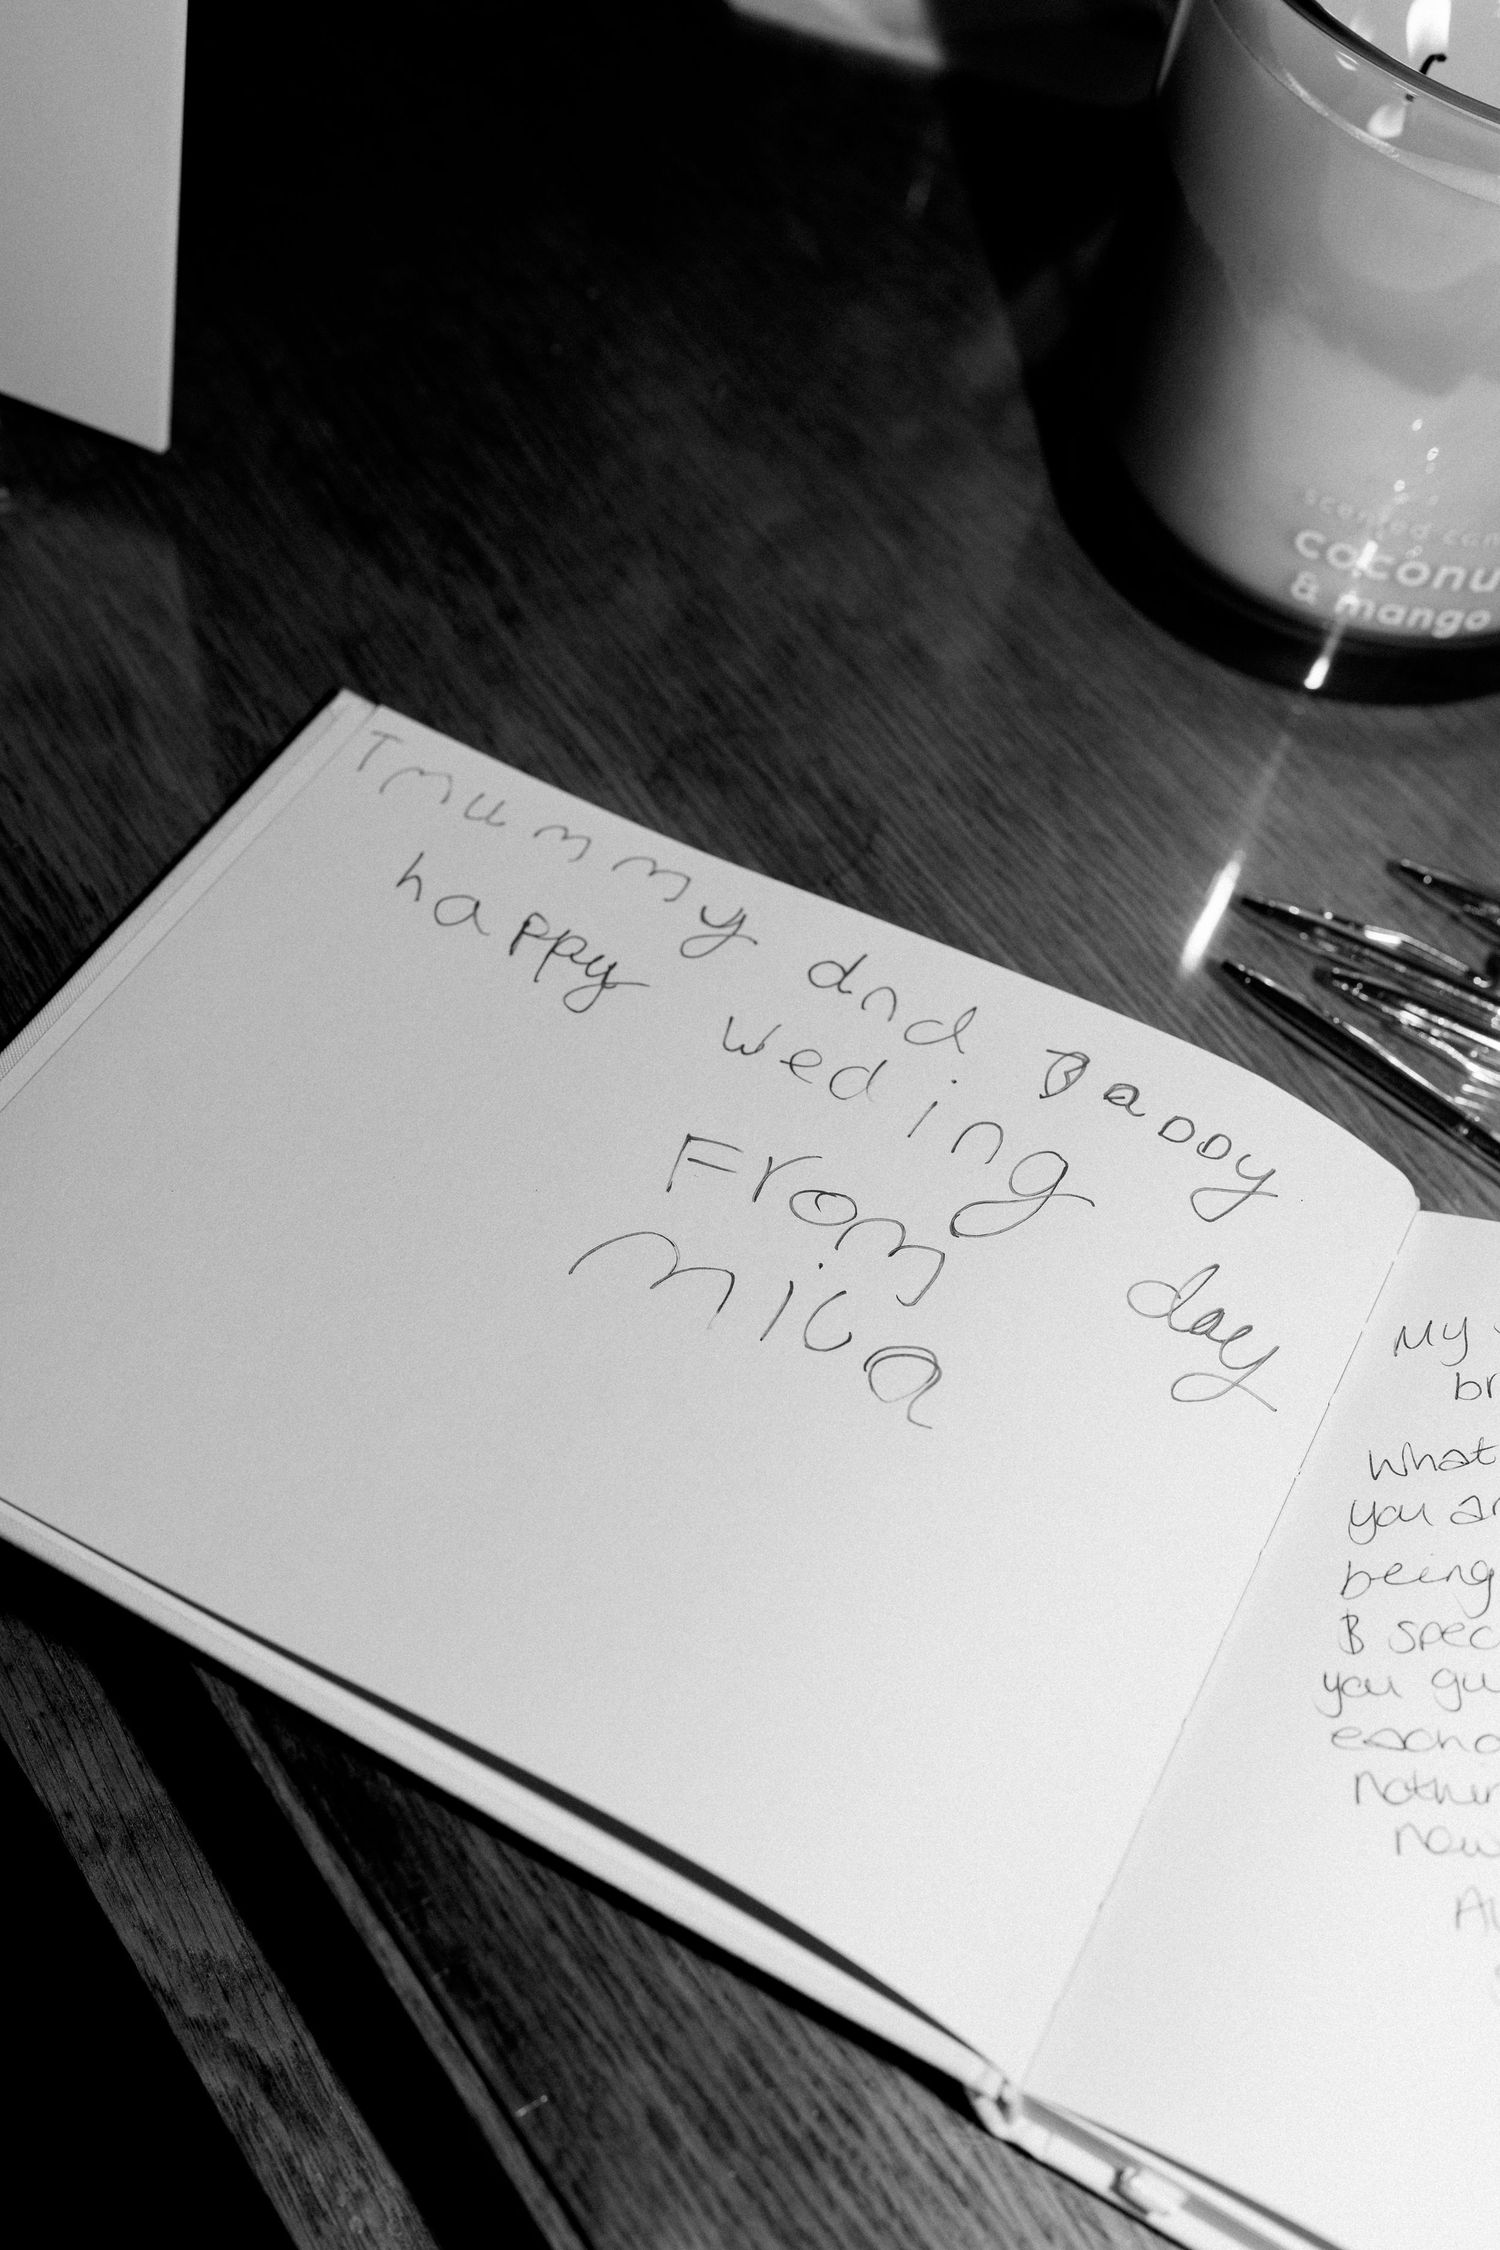 scented can
coconu
& mango
T mummy and Daddy
happy Weding day
From
mica
My
br
What
you ar
being
B spec
you gu
each o
nothin
now
Al